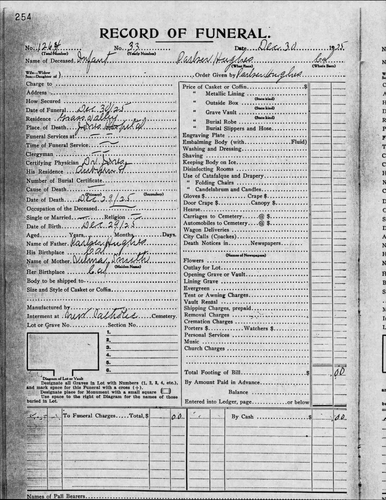 254
RECORD OF FUNERAL.
No. 1264 No. 33 Date Dec. 30 1925
(Total Number) (Yearly Number)
Name of Deceased Infant Hughes
(What Race) (Where Born)
Order Given by Hughes
Charge to
Address
How Secured
Date of Funeral Dec 30/25
Residence Grass Valley
Place of Death Jones Hospital
Funeral Services at
Time of Funeral Service
Clergyman
Certifying Physician Dr. Jones
His Residence
Number of Burial Certificate
Cause of Death
Date of Death Dec 29/25
Occupation of the Deceased
Single or Married Religion
Date of Birth Dec 29/25
Aged Years, Months Days.
Name of Father Hughes
His Birthplace Cal
Name of Mother Smith
(Maiden Name)
Her Birthplace Cal
Body to be shipped to
Size and Style of Casket or Coffin
Manufactured by
Interment at Catholic Cemetery.
Lot or Grave No. Section No.
1.
2.
3.
4.
5.
6.
Diagram of Lot or Vault
Designate all Graves in Lot with Numbers (1, 2, 3, 4, etc.),
and mark space for this Funeral with a cross (+).
Designate place for Monument with a small square
Use space to the right of Diagram for the names of those
buried in Lot.
Price of Casket or Coffin $
" Metallic Lining
(State kind)
" Outside Box
(State kind)
" Grave Vault
(State kind)
" Burial Robe
(State kind)
" Burial Slippers and Hose
Engraving Plate
Embalming Body (with Fluid)
Washing and Dressing
Shaving
Keeping Body on Ice
Disinfecting Rooms
Use of Catafalque and Drapery
" Folding Chairs
" Candelabrum and Candles
Gloves $ Crape $
Door Crape $ Canopy $
Hearse
Carriages to Cemetery @ $
Automobiles to Cemetery @ $
Wagon Deliveries
City Calls (Coaches)
Death Notices in Newspapers
Flowers
Outlay for Lot
Opening Grave or Vault
Lining Grave
Evergreen
Tent or Awning Charges
Vault Rental
Shipping Charges, prepaid
Removal Charges
Cremation Charges
Porters $ Watchers $
Personal Services
Music
Church Charges
Total Footing of Bill $ 00
By Amount Paid in Advance
Balance
Entered into Ledger, page or below.
To Funeral Charges Total, $ 00 By Cash $ 00
Names of Pall Bearers